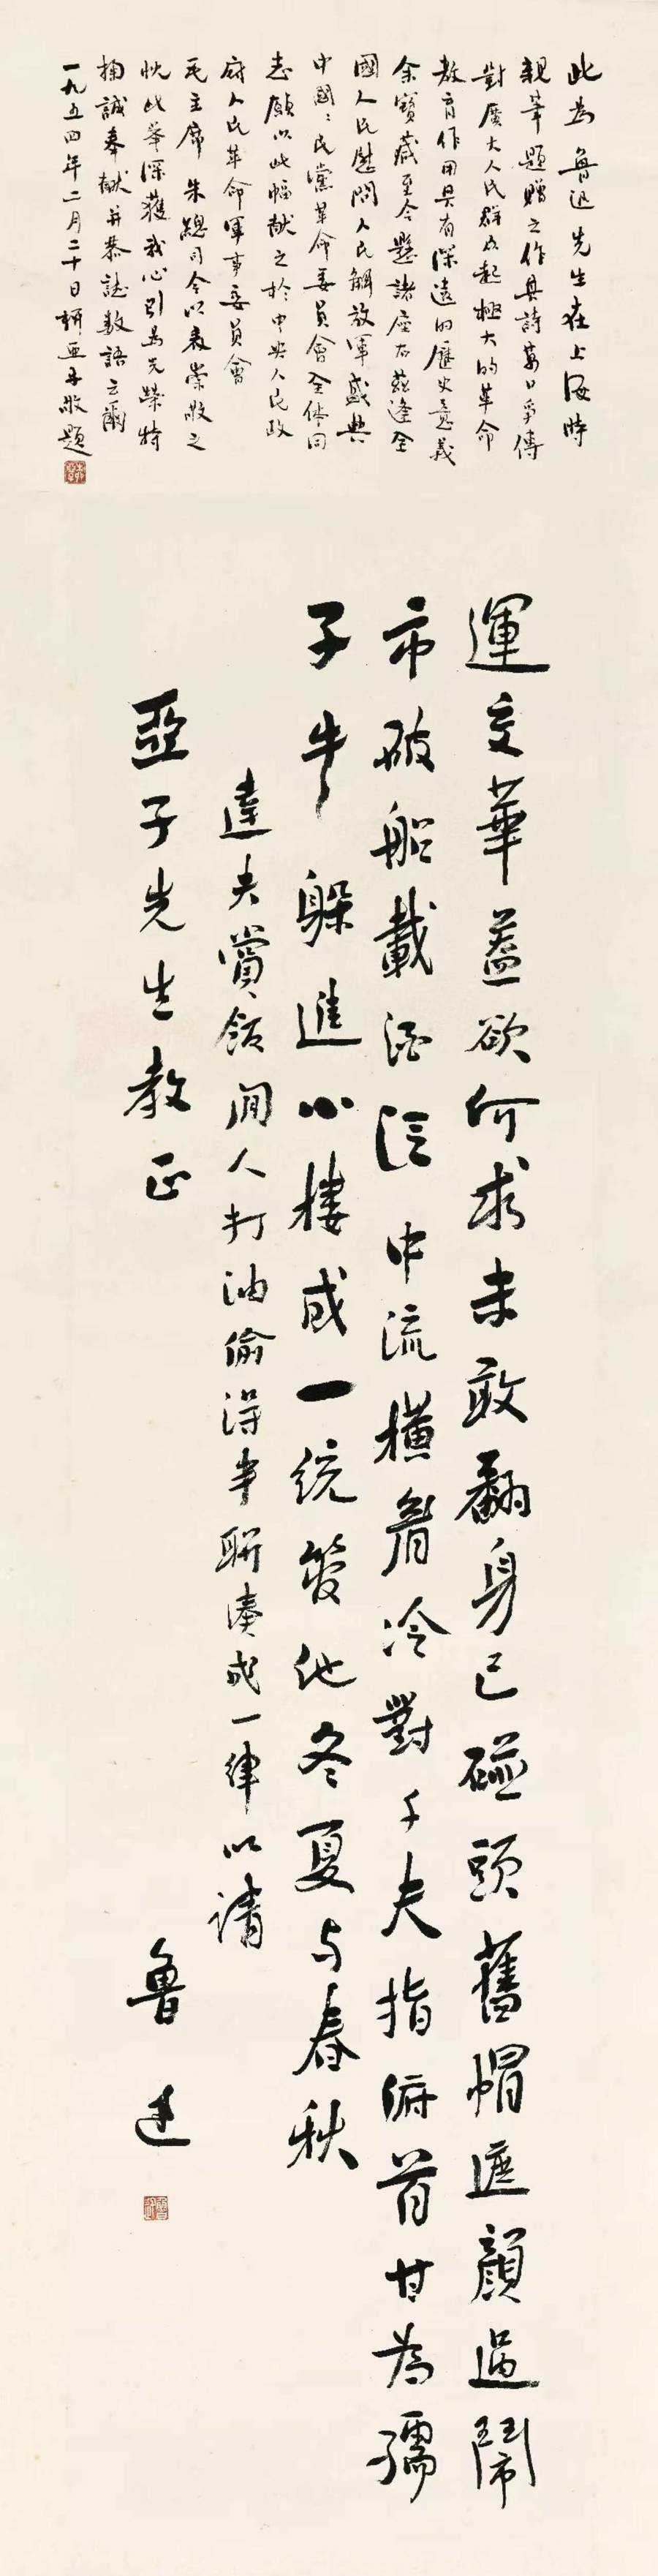 此為魯迅先生在上海時
親筆題贈之作其詩萬口爭傳
對廣大人民群众起極大的革命
教育作用具有深遠的歷史意義
余寶藏至今懸諸座右茲逢全
國人民慰問人民解放軍盛典
中國國民黨革命委員會全体同
志願以此幅献之於中央人民政
府人民革命軍事委員會
毛主席 朱總司令以表崇敬之
忱此舉深獲我心引為光榮特
掬誠奉献并恭誌数語云爾
一九五四年二月二十日柳亞子敬題
運交華蓋欲何求未敢翻身已碰頭舊帽遮顏過鬧
市破船載酒泛中流橫眉冷對千夫指俯首甘為孺
子牛躲進小樓成一統管他冬夏与春秋
達夫賞飯閒人打油偷得半聯湊成一律以請
亞子先生教正
魯迅